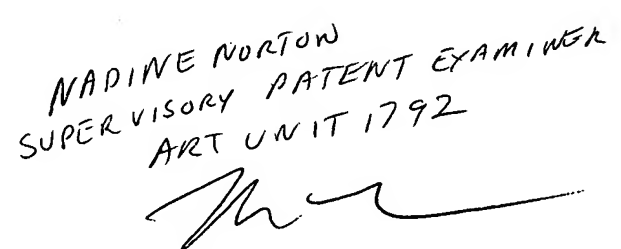 NADINE NORTON
SUPERVISORY PATENT EXAMINER
ART UNIT 1792